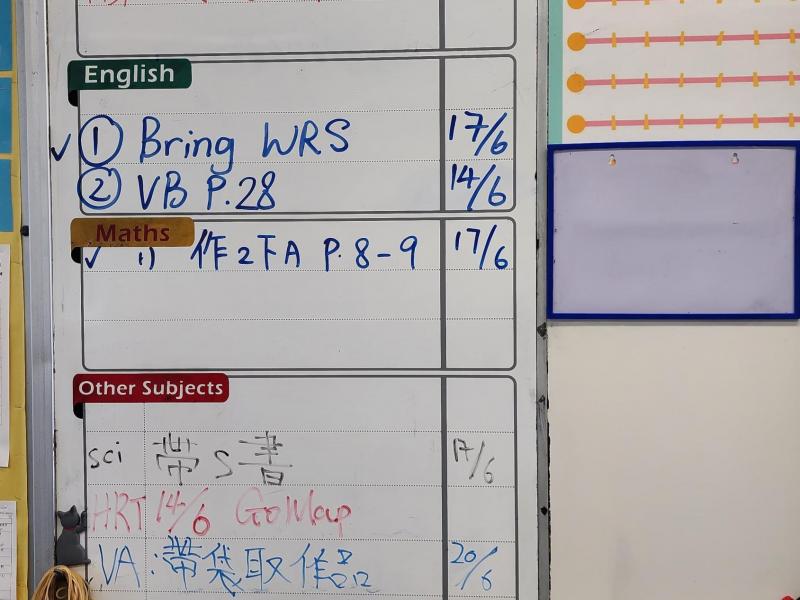 English
✓ ① Bring WRS 17/6
② VB P.28 14/6
Maths
✓ 1) 作2下A P.8-9 17/6
Other Subjects
sci 帶S書 17/6
HRT 14/6 GoMap
VA:帶袋取作品 20/6